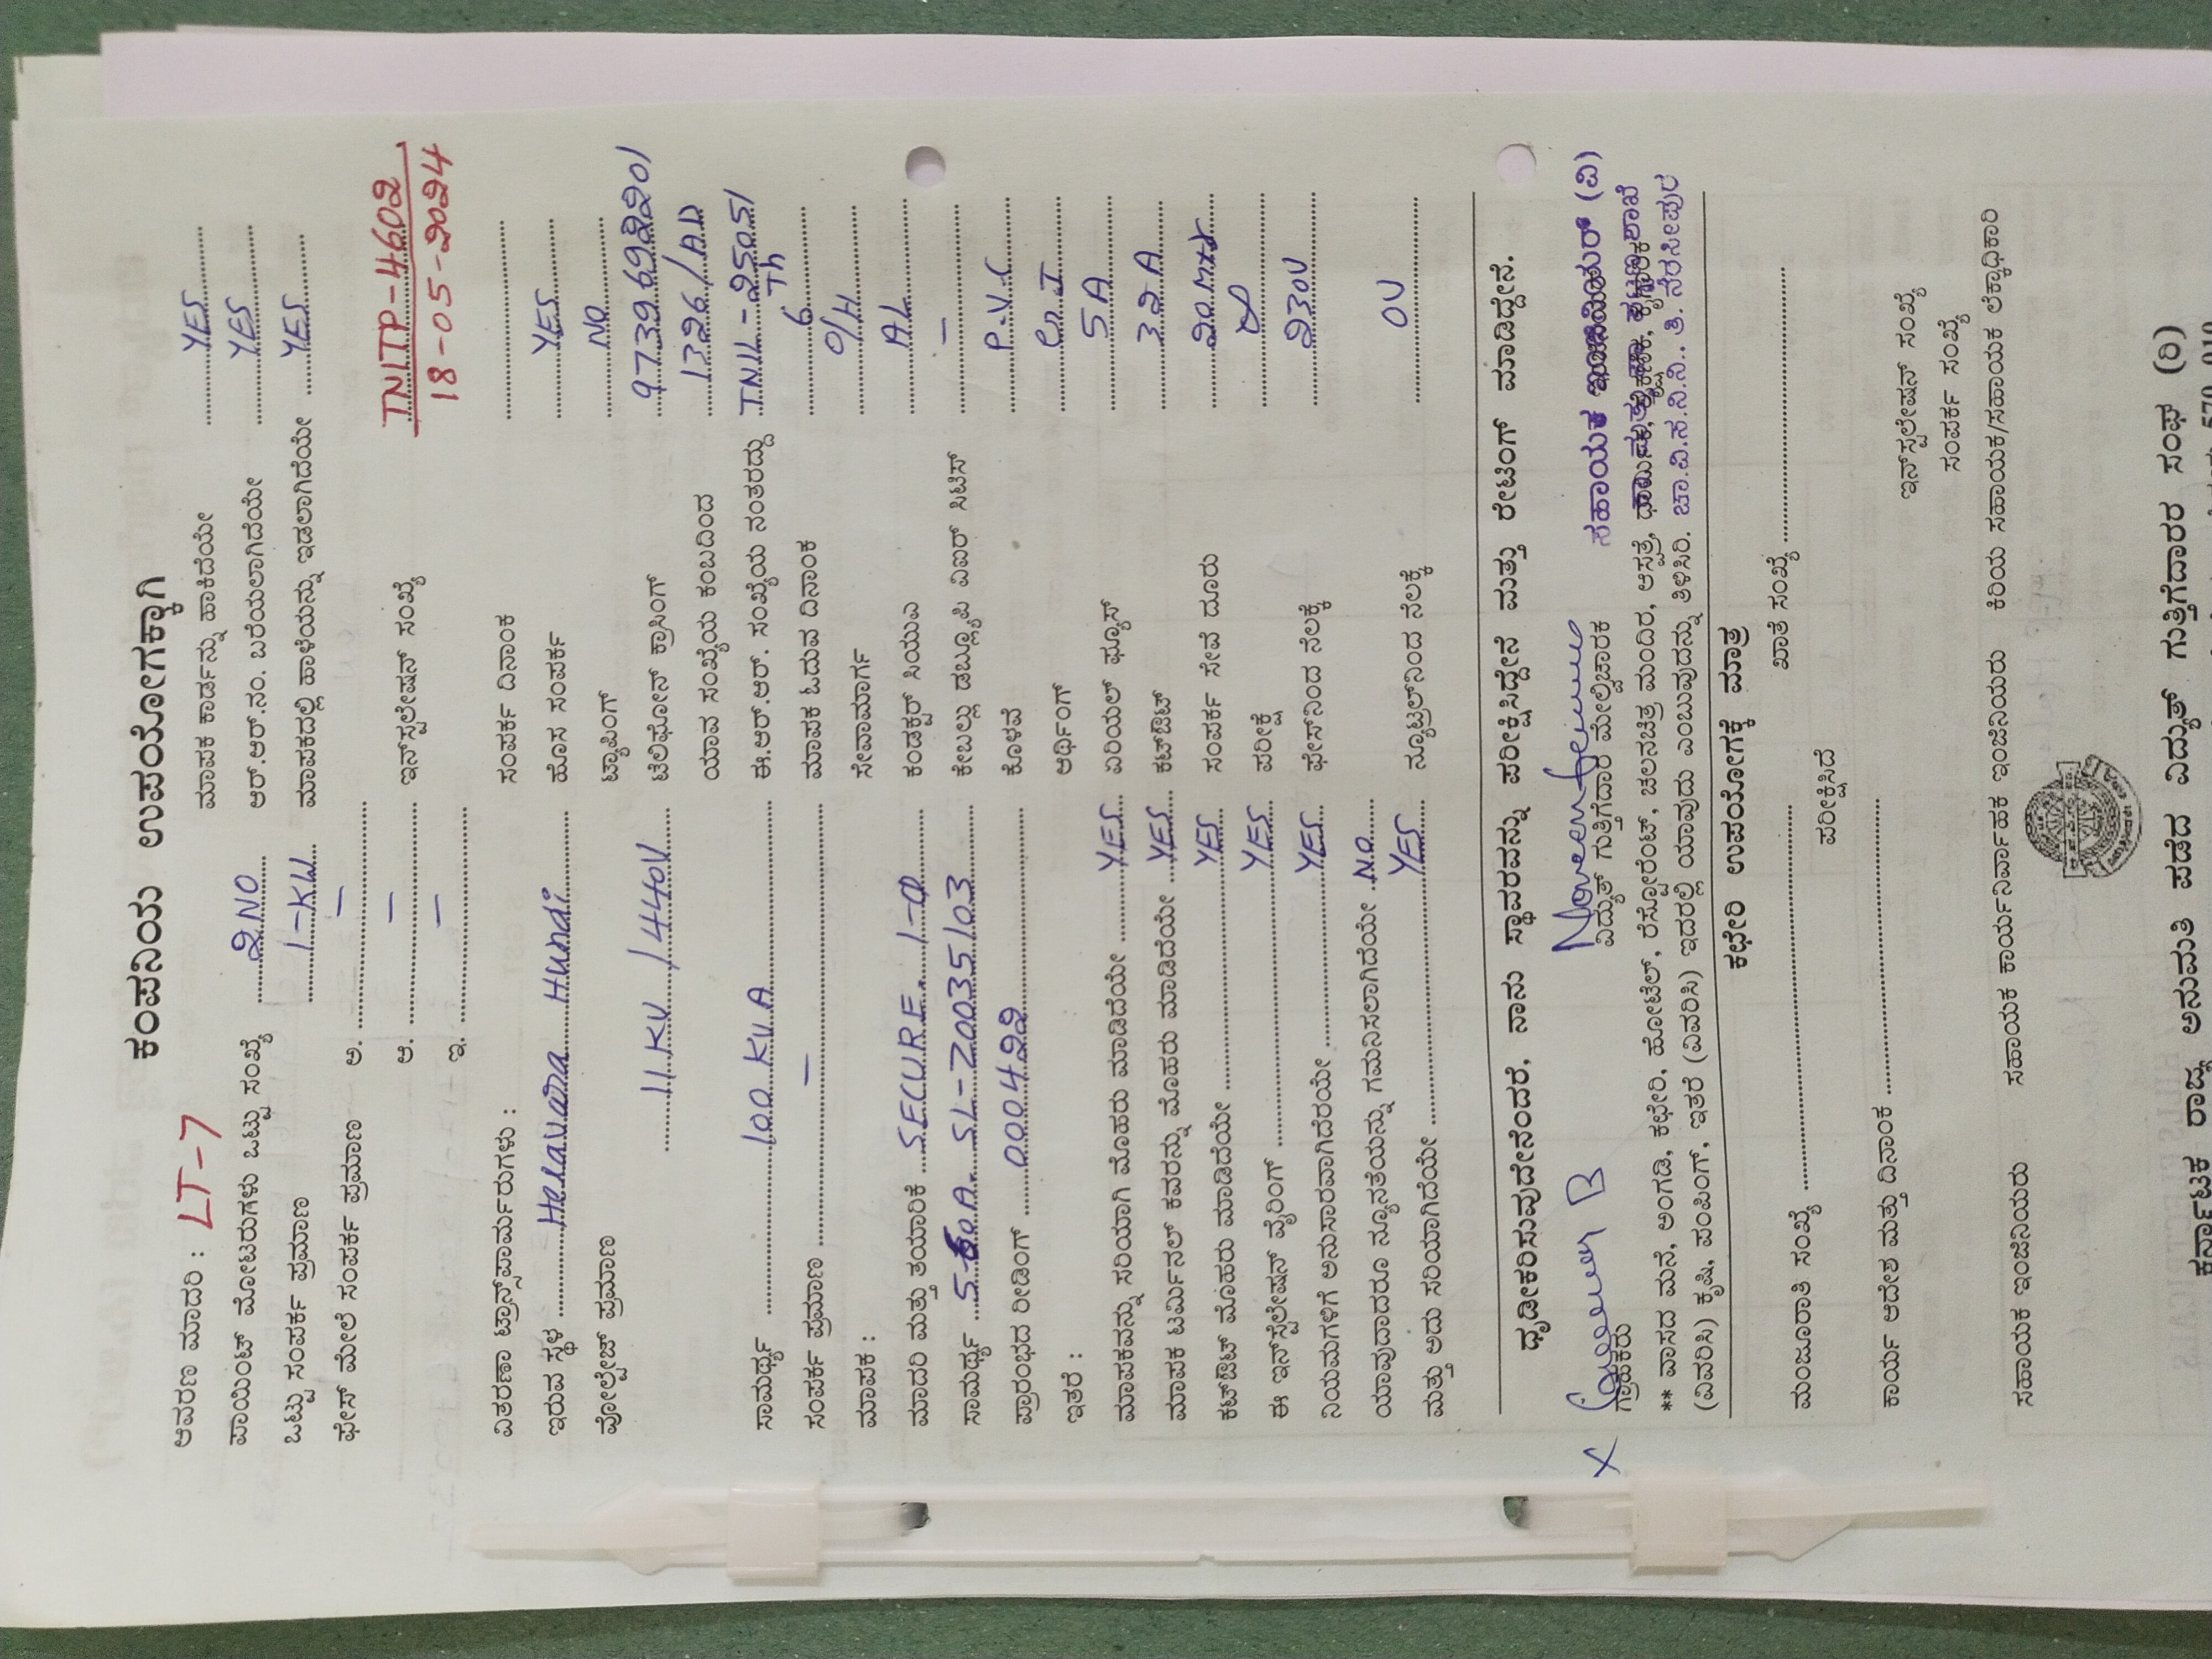 ಕಂಪನಿಯ ಉಪಯೋಗಕ್ಕಾಗಿ
ಆವರಣ ಮಾದರಿ : LT-7 ಮಾಪಕ ಕಾರ್ಡನ್ನು ಹಾಕಿದೆಯೇ YES
ಪಾಯಿಂಟ್ ಮೋಟರುಗಳು ಒಟ್ಟು ಸಂಖ್ಯೆ 2 NO ಆರ್.ಆರ್.ನಂ. ಬರೆಯಲಾಗಿದೆಯೇ YES
ಒಟ್ಟು ಸಂಪರ್ಕ ಪ್ರಮಾಣ 1-KW ಮಾಪಕದಲ್ಲಿ ಹಾಳೆಯನ್ನು ಇಡಲಾಗಿದೆಯೇ YES
ಫೇಸ್ ಮೇಲೆ ಸಂಪರ್ಕ ಪ್ರಮಾಣ ಅ. —
ಆ. — ಇನ್‌ಸ್ಟಲೇಷನ್ ಸಂಖ್ಯೆ TNITP-4602
ಇ. — 18-05-2024
ವಿತರಣಾ ಟ್ರಾನ್ಸ್‌ಫಾರ್ಮರುಗಳು : ಸಂಪರ್ಕ ದಿನಾಂಕ
ಇರುವ ಸ್ಥಳ Heravara Hundi ಹೊಸ ಸಂಪರ್ಕ YES
ವೋಲ್ಟೇಜ್ ಪ್ರಮಾಣ ಟ್ಯಾಪಿಂಗ್ NO
11 KV / 440V ಟೆಲಿಫೋನ್ ಕ್ರಾಸಿಂಗ್ 9739692201
ಯಾವ ಸಂಖ್ಯೆಯ ಕಂಬದಿಂದ 1326/AD
ಸಾಮರ್ಥ್ಯ 100 KVA ಈ.ಆರ್.ಆರ್. ಸಂಖ್ಯೆಯ ನಂತರದ್ದು TNIL-25051
ಸಂಪರ್ಕ ಪ್ರಮಾಣ — ಮಾಪಕ ಓದುವ ದಿನಾಂಕ 6 Th
ಮಾಪಕ : ಸೇವಾಮಾರ್ಗ O/H
ಮಾದರಿ ಮತ್ತು ತಯಾರಿಕೆ SECURE 1-Φ ಕಂಡಕ್ಟರ್ ಸಿಯುಎ AL
ಸಾಮರ್ಥ್ಯ 5-60A SL-Z0035103 ಕೇಬಲ್ಲು ಡಬ್ಲ್ಯೂಪಿ ವಿಐಆರ್ ಸಿಟಿಸ್ —
ಪ್ರಾರಂಭದ ರೀಡಿಂಗ್ 000422 ಕೊಳವೆ P.V.C
ಇತರೆ : ಅರ್ಥಿಂಗ್ G.I
ಮಾಪಕವನ್ನು ಸರಿಯಾಗಿ ಮೊಹರು ಮಾಡಿದೆಯೇ YES ಏರಿಯಲ್ ಫ್ಯೂಸ್ 5 A
ಮಾಪಕ ಟರ್ಮಿನಲ್ ಕವರನ್ನು ಮೊಹರು ಮಾಡಿದೆಯೇ YES ಕಟ್‌ಔಟ್ 32 A
ಕಟ್‌ಔಟ್ ಮೊಹರು ಮಾಡಿದೆಯೇ YES ಸಂಪರ್ಕ ಸೇವೆ ದೂರು 20 Mtr
ಈ ಇನ್‌ಸ್ಟೆಲೇಷನ್ ವೈರಿಂಗ್ YES ಪರೀಕ್ಷೆ
ನಿಯಮಗಳಿಗೆ ಅನುಸಾರವಾಗಿದೆರೆಯೇ YES ಫೇಸ್‌ನಿಂದ ನೆಲಕ್ಕೆ 230V
ಯಾವುದಾದರೂ ನ್ಯೂನತೆಯನ್ನು ಗಮನಿಸಲಾಗಿದೆಯೇ NO
ಮತ್ತು ಅದು ಸರಿಯಾಗಿದೆಯೇ YES ನ್ಯೂಟ್ರಲ್‌ನಿಂದ ನೆಲಕ್ಕೆ 0V
ಧೃಡೀಕರಿಸುವುದೇನೆಂದರೆ, ನಾನು ಸ್ಥಾವರವನ್ನು ಪರೀಕ್ಷಿಸಿದ್ದೇನೆ ಮತ್ತು ರೇಟಿಂಗ್ ಮಾಡಿದ್ದೇನೆ.
X
ಗ್ರಾಹಕರು ವಿದ್ಯುತ್ ಗುತ್ತಿಗೆದಾರ ಮೇಲ್ವಿಚಾರಕ ಸಹಾಯಕ ಇಂಜಿನಿಯರ್ (ವಿ)
** ವಾಸದ ಮನೆ, ಅಂಗಡಿ, ಕಛೇರಿ, ಹೋಟೆಲ್, ರೆಸ್ಟೋರೆಂಟ್, ಚಲನಚಿತ್ರ ಮಂದಿರ, ಆಸ್ಪತ್ರೆ,
(ವಿವರಿಸಿ) ಕೃಷಿ, ಪಂಪಿಂಗ್, ಇತರೆ (ವಿವರಿಸಿ) ಇದರಲ್ಲಿ ಯಾವುದು ಎಂಬುವುದನ್ನು ತಿಳಿಸಿರಿ. ಚಾ.ವಿ.ಸ.ನಿ.ನಿ., ತಿ. ನರಸೀಪುರ
ಕಛೇರಿ ಉಪಯೋಗಕ್ಕೆ ಮಾತ್ರ
ಮಂಜೂರಾತಿ ಸಂಖ್ಯೆ ಖಾತೆ ಸಂಖ್ಯೆ
ಪರೀಕ್ಷಿಸಿದೆ
ಕಾರ್ಯ ಆದೇಶ ಮತ್ತು ದಿನಾಂಕ
ಇನ್‌ಸ್ಟಲೇಷನ್ ಸಂಖ್ಯೆ
ಸಂಪರ್ಕ ಸಂಖ್ಯೆ
ಸಹಾಯಕ ಇಂಜಿನಿಯರು ಸಹಾಯಕ ಕಾರ್ಯನಿರ್ವಾಹಕ ಇಂಜಿನಿಯರು ಕಿರಿಯ ಸಹಾಯಕ/ಸಹಾಯಕ ಲೆಕ್ಕಾಧಿಕಾರಿ
ಕರ್ನಾಟಕ ರಾಜ್ಯ ಅನುಮತಿ ಪಡೆದ ವಿದ್ಯುತ್ ಗುತ್ತಿಗೆದಾರರ ಸಂಘ (ರಿ)